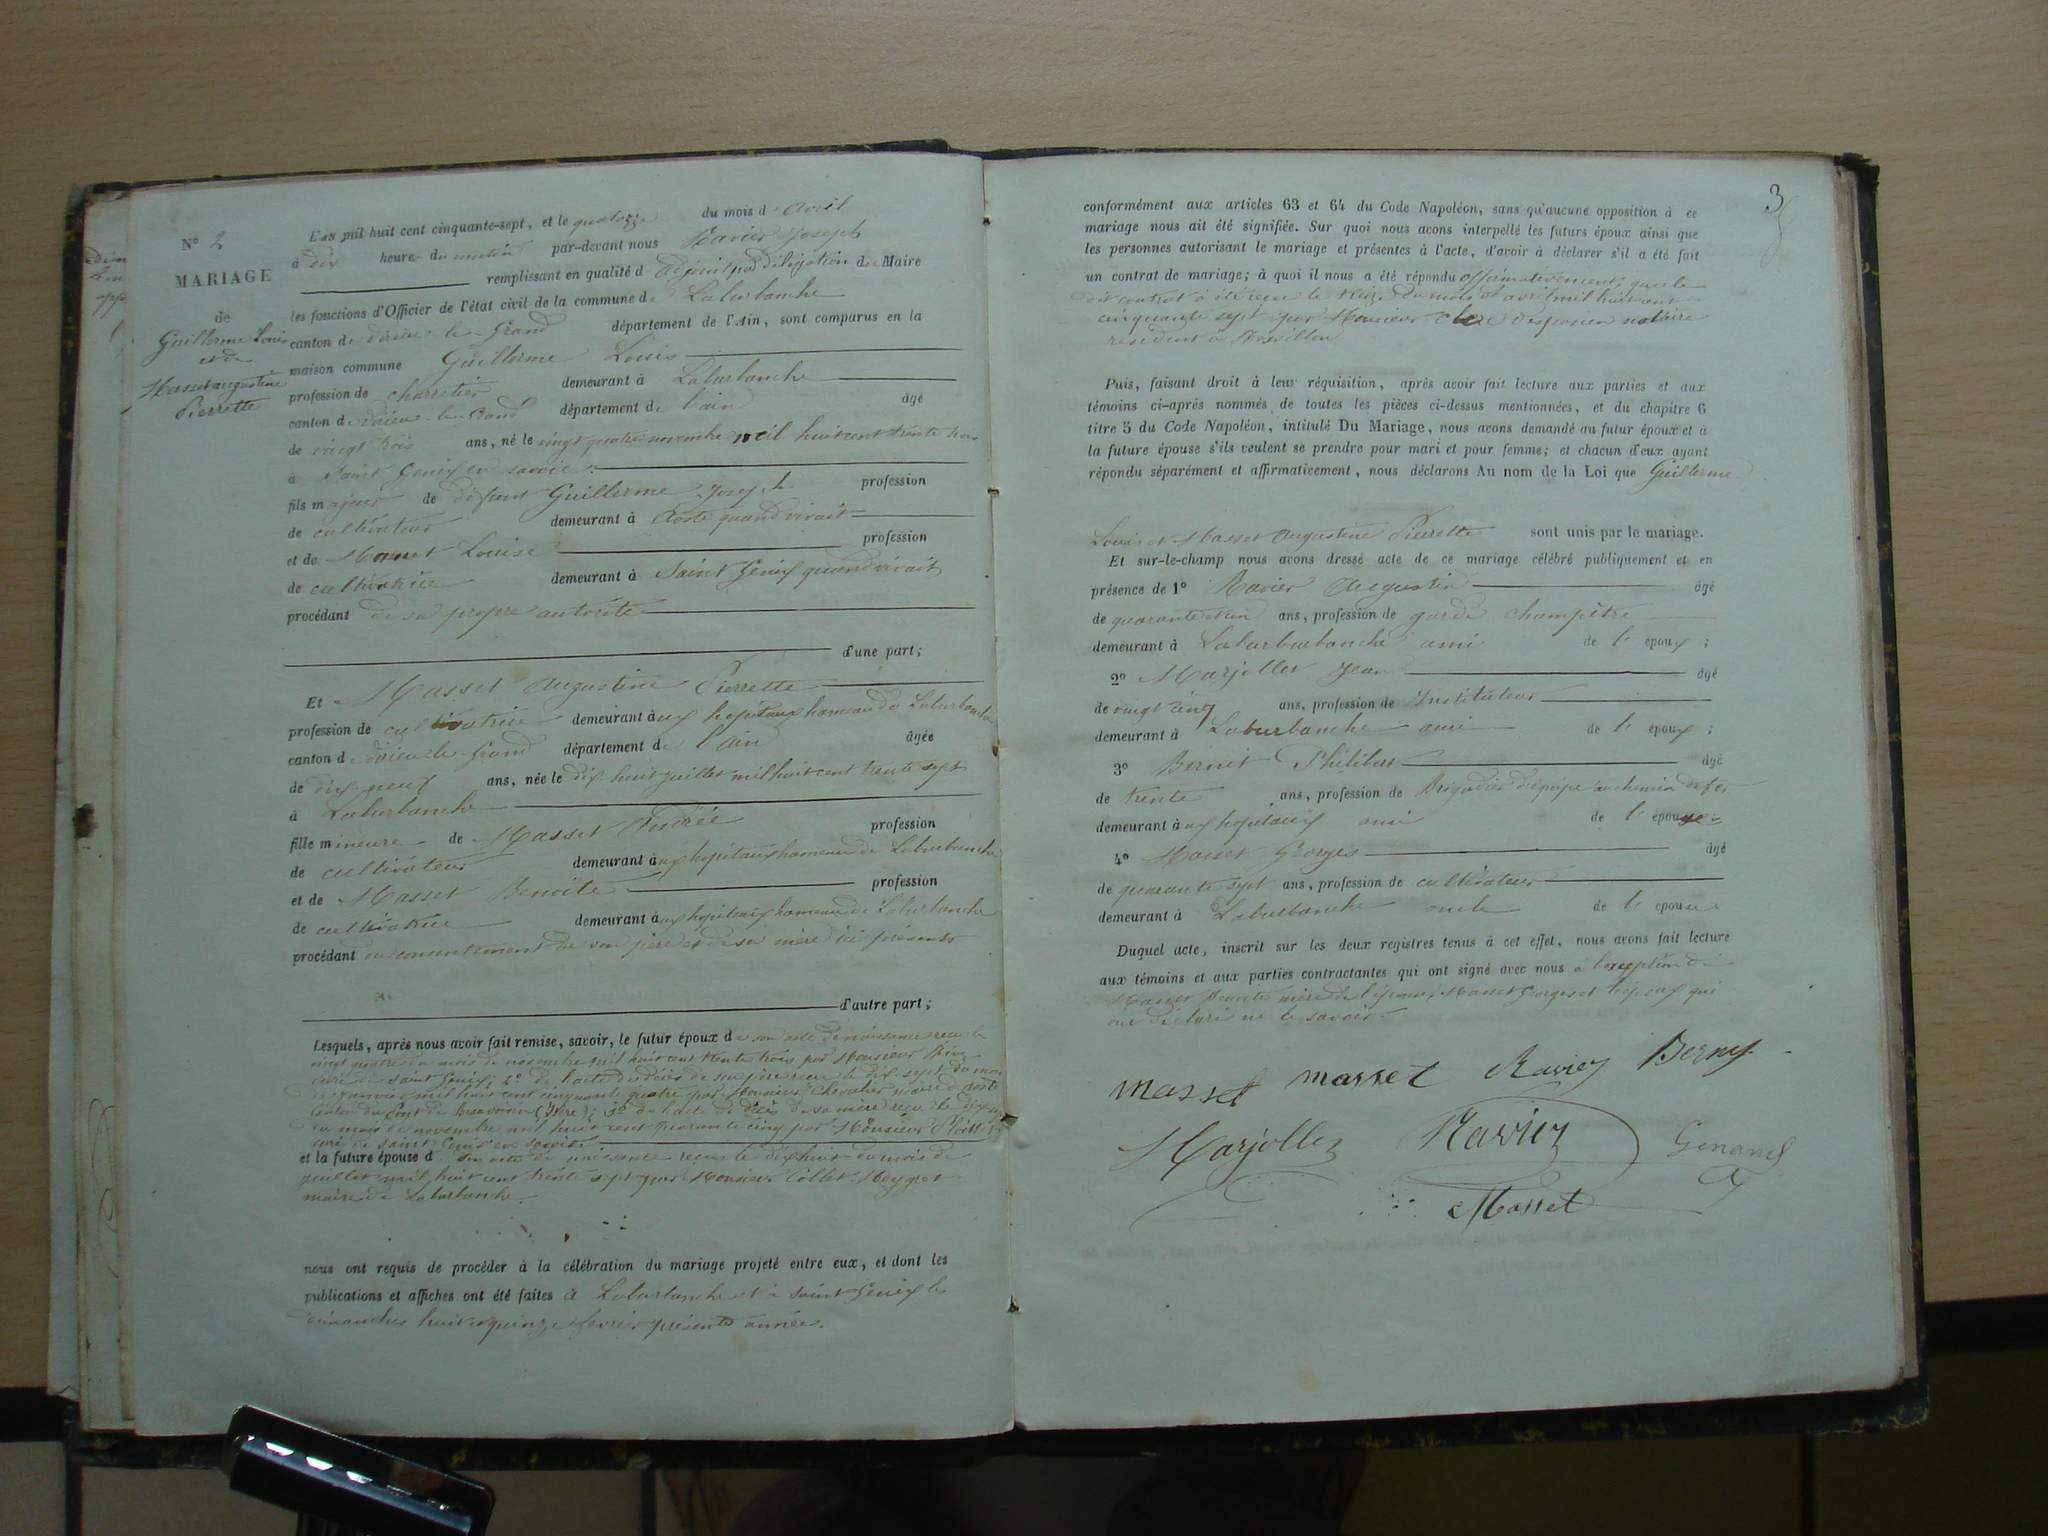 N° 2
MARIAGE
de
Guillerme Louis
et de
Masset augustine
Pierrette
L'AN mil huit cent cinquante-sept, et le quatorze du mois d'avril
à dix heure du matin par-devant nous Ravier Joseph
remplissant en qualité d'adjoint par déligation de Maire
les fonctions d'Officier de l'état civil de la commune de Laburbanche
canton de virieu le Grand département de l'Ain, sont comparus en la
maison commune Guillerme Louis
profession de charretier demeurant à Laburbanche
canton de virieu le Grand département de l'ain âgé
de vingt trois ans, né le vingt quatre novembre mil huit cent trente trois
à Saint Genix en savoie
fils majeur de défunt Guillerme Joseph profession
de cultivateur demeurant à Aoste quand vivait
et de Louise profession
de cultivatrice demeurant à Saint Genix quand vivait
procédant de sa propre autorité
d'une part;
Et Masset Augustine Pierrette
profession de cultivatrice demeurant aux hopitaux hameau de Laburbanche
canton de virieu le Grand département de l'ain âgée
de dix neuf ans, née le dix huit juillet mil huit cent trente sept
à Laburbanche
fille mineure de Masset André profession
de cultivateur demeurant aux hopitaux hameau de Laburbanche
et de Masset Benoite profession
de cultivatrice demeurant aux hopitaux hameau de Laburbanche
procédant du consentement de son père et de sa mère ici présents
d'autre part;
Lesquels, après nous avoir fait remise, savoir, le futur époux de son acte de naissance reçu le
vingt quatre du mois de novembre mil huit cent trente trois par Monsieur
curé de Saint Genix; 2° de l'acte de décès de son père reçu le dix sept du mois
de janvier mil huit cent cinquante quatre par Monsieur Chevalier maire d'aoste
canton du Pont de Beauvoisin (Isère); 3° de l'acte de décès de sa mère reçu le
du mois de novembre mil huit cent quarante cinq par Monsieur
curé de saint Genix en savoie
et la future épouse d son acte de naissance reçu le dix huit du mois de
juillet mil huit cent trente sept par Monsieur Collet-Meygret
maire de Laburbanche.
nous ont requis de procéder à la célébration du mariage projeté entre eux, et dont les
publications et affiches ont été faites à Laburbanche et à saint Genix les
dimanches huit et quinze février présente année.
3
conformément aux articles 63 et 64 du Code Napoléon, sans qu'aucune opposition à ce
mariage nous ait été signifiée. Sur quoi nous avons interpellé les futurs époux ainsi que
les personnes autorisant le mariage et présentes à l'acte, d'avoir à déclarer s'il a été fait
un contrat de mariage; à quoi il nous a été répondu affirmativement, que le
dit contrat à été reçu le treize du mois d'avril mil huit cent
cinquante sept par Monsieur notaire
résident à Rossillon
Puis, faisant droit à leur réquisition, après avoir fait lecture aux parties et aux
témoins ci-après nommés de toutes les pièces ci-dessus mentionnées, et du chapitre 6
titre 5 du Code Napoléon, intitulé Du Mariage, nous avons demandé au futur époux et à
la future épouse s'ils veulent se prendre pour mari et pour femme; et chacun d'eux ayant
répondu séparément et affirmativement, nous déclarons Au nom de la Loi que Guillerme
Louis et Masset Augustine Pierrette sont unis par le mariage.
Et sur-le-champ nous avons dressé acte de ce mariage célébré publiquement et en
présence de 1° Ravier Augustin âgé
de quarante un ans, profession de garde champêtre
demeurant à Laburbanche ami de l'époux;
2° Marjollet Jean âgé
de vingt cinq ans, profession de Instituteur
demeurant à Laburbanche ami de l'époux;
3° Bernet Philibert âgé
de trente ans, profession de Brigadier d'équipe au chemin de fer
demeurant aux hopitaux ami de l'épouse;
4° Masset Georges âgé
de quarante sept ans, profession de cultivateur
demeurant à Laburbanche oncle de l'épouse
Duquel acte, inscrit sur les deux registres tenus à cet effet, nous avons fait lecture
aux témoins et aux parties contractantes qui ont signé avec nous à l'exception de
Masset Benoite mère de l'épouse, Masset Georges et l'époux qui
ont déclaré ne le savoir.
masset masset Ravier
Marjollet Ravier
Masset